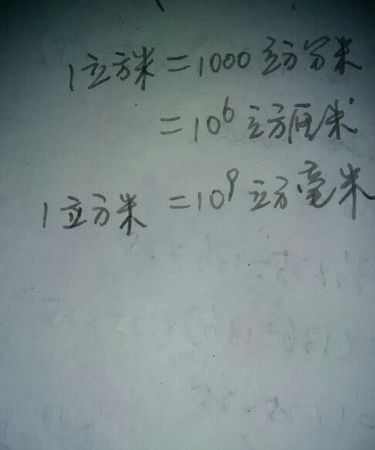 1立方米=1000立方分米
=10⁶立方厘米
1立方米=10⁹立方毫米